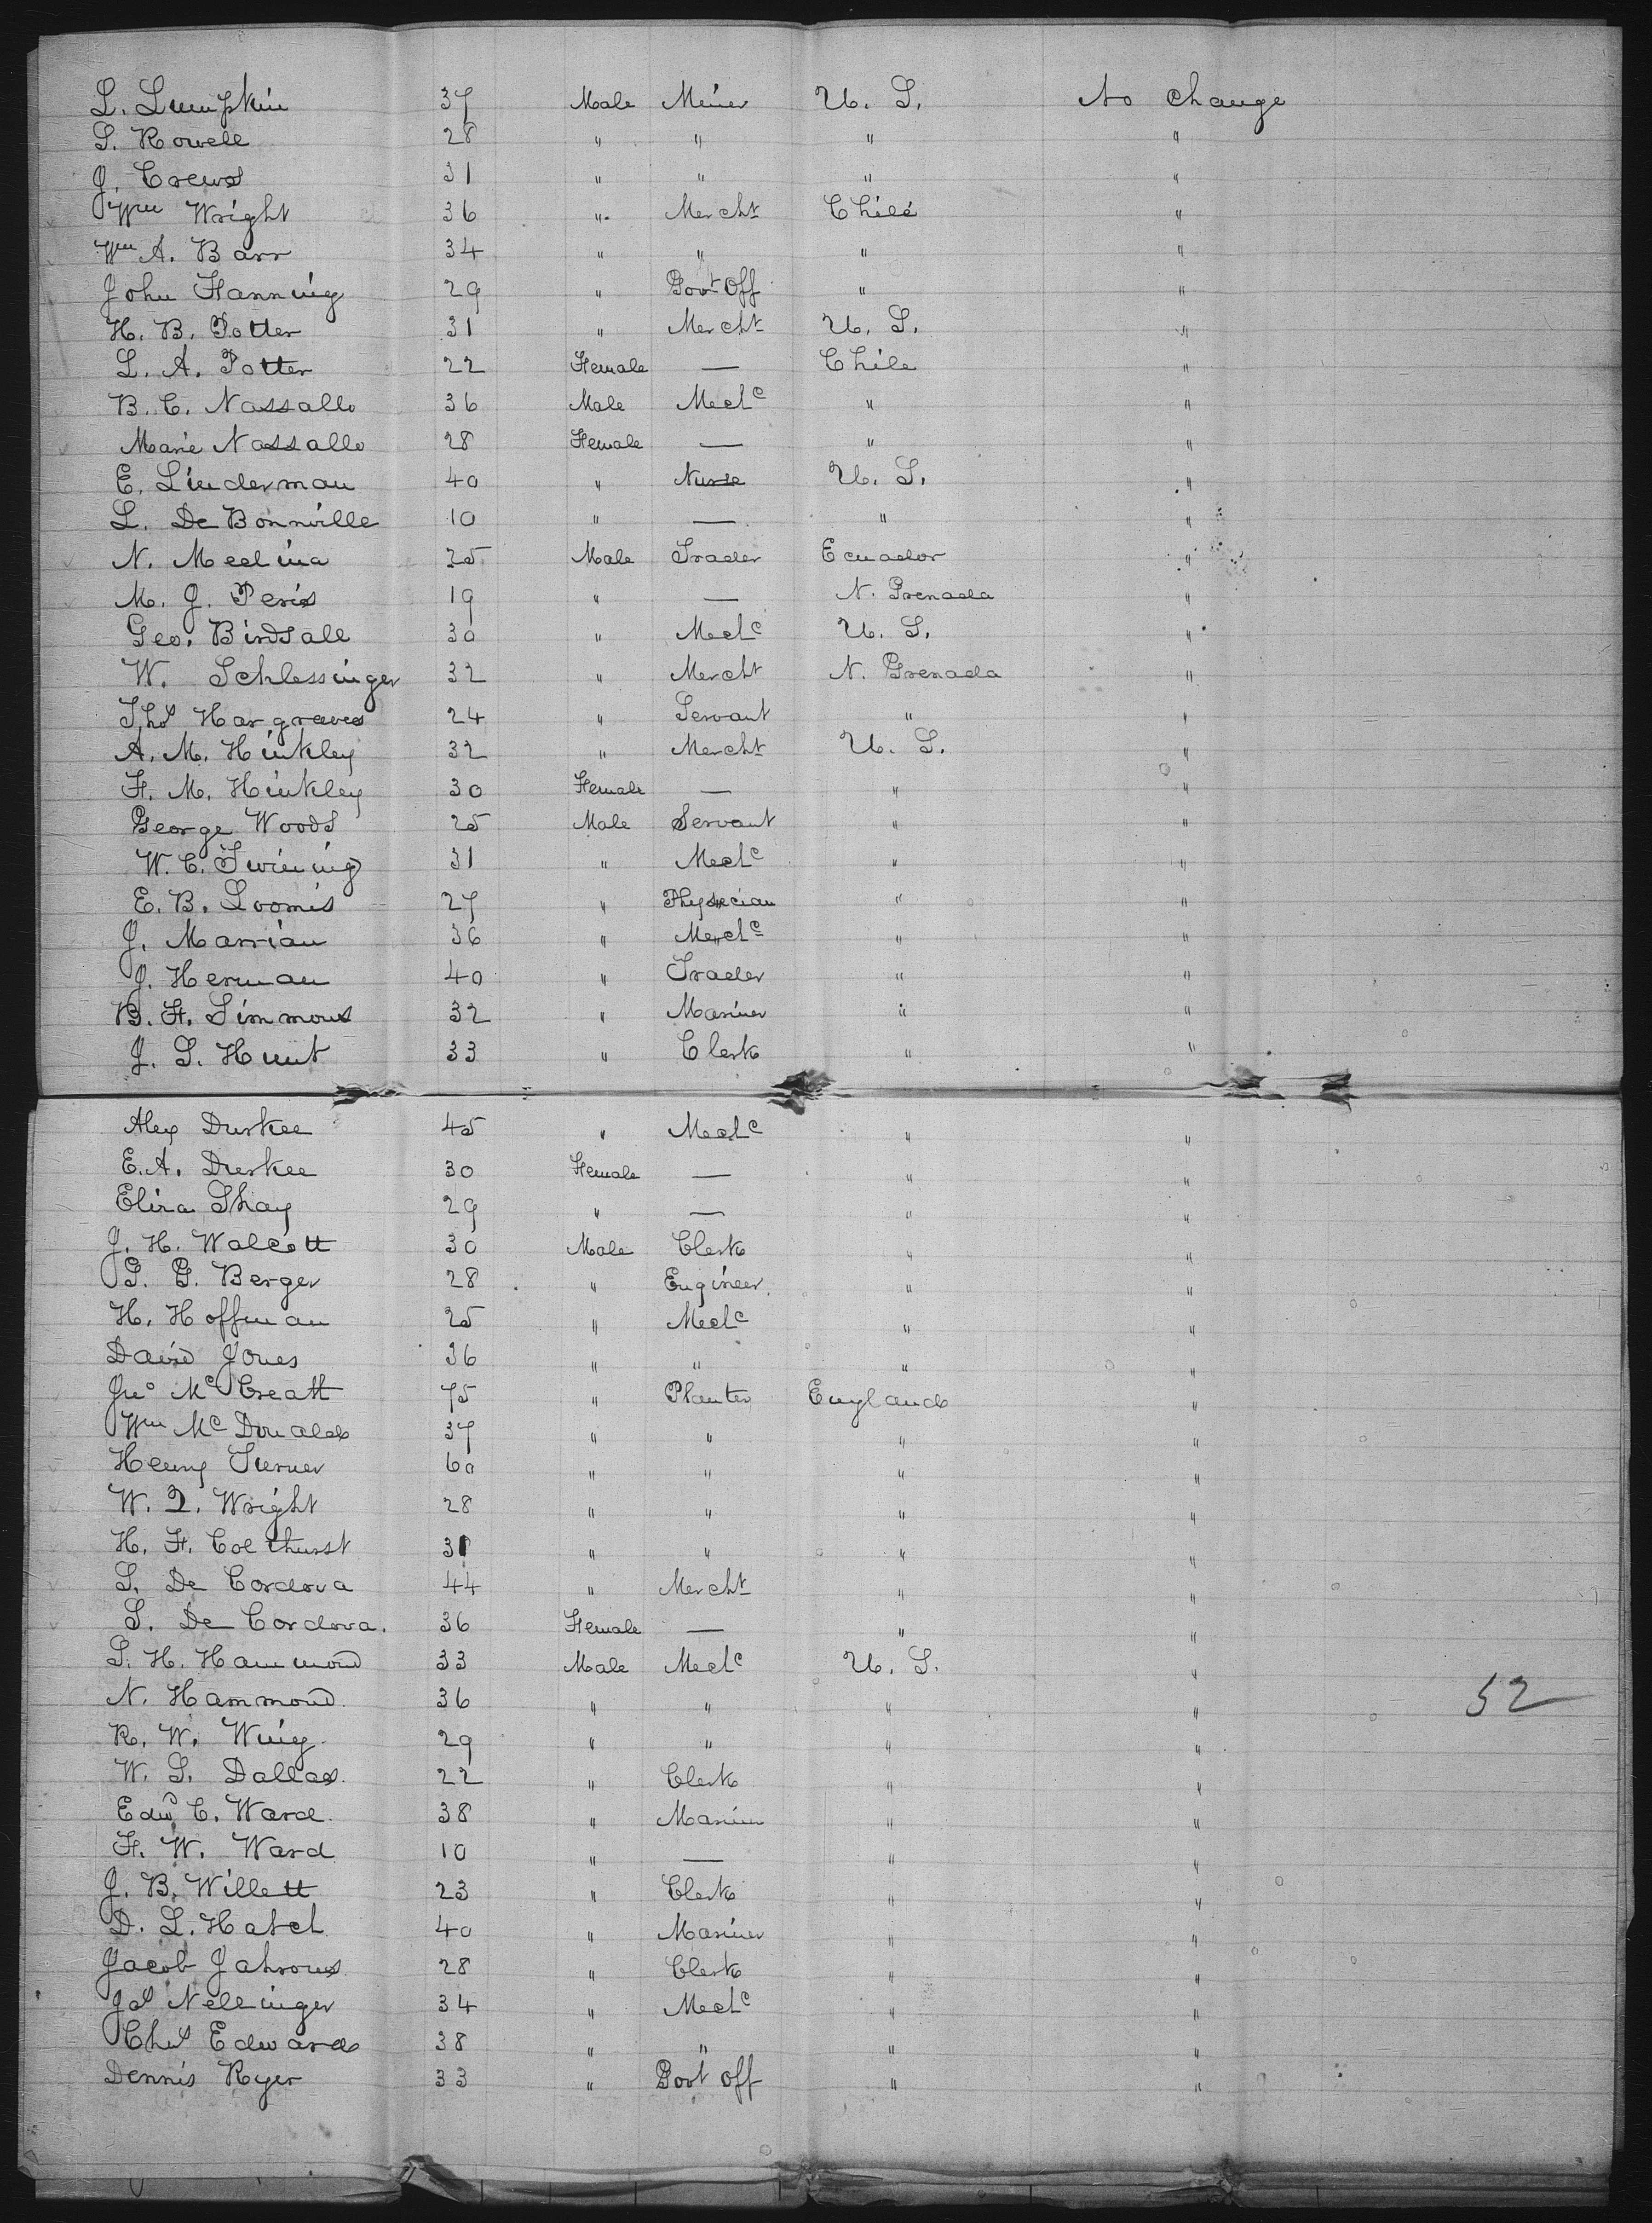 L. Lumpkin 37 Male Miner U. S. No change
S. Rowell 28 " " " "
J. Crews 31 " " " "
Wm Wright 36 " Mercht Chile "
Wm A. Barr 34 " " " "
John Fanning 29 " Govt Off " "
H. B. Potter 31 " Mercht U. S. "
L. A. Potter 22 Female — Chile "
B. C. Nassallo 36 Male Mechc " "
Marie Nassallo 28 Female — " "
E. Linderman 40 " Nurse U. S. "
L. De Bonnville 10 " — " "
N. Medina 25 Male Trader Ecuador "
M. J. Peris 19 " — N. Grenada "
Geo. Birdsall 30 " Mechc U. S. "
W. Schlessinger 32 " Mercht N. Grenada "
Thos Hargraves 24 " Servant " "
A. M. Hinkley 32 " Mercht U. S. "
F. M. Hinkley 30 Female — " "
George Woods 25 Male Servant " "
W. C. Twining 31 " Mechc " "
E. B. Loomis 27 " Physician " "
J. Marrian 36 " Mechc " "
J. Herman 40 " Trader " "
B. F. Simmons 32 " Mariner " "
J. S. Hunt 33 " Clerk " "
Alex Durkee 45 " Mechc " "
E. A. Durkee 30 Female — " "
Eliza Shay 29 " — " "
J. H. Walcott 30 Male Clerk " "
G. G. Berger 28 " Engineer. " "
H. Hoffman 25 " Mechc " "
David Jones 36 " " " "
Jno McCreatt 75 " Planter England "
Wm McDonald 37 " " " "
Henry Turner 60 " " " "
W. Q. Wright 28 " " " "
H. F. Colthurst 31 " " " "
S. De Cordova 44 " Mercht " "
S. De Cordova. 36 Female — " "
S. H. Hammond 33 Male Mechc U. S. "
N. Hammond. 36 " " " " 52
R. W. Wing 29 " " " "
W. S. Dallas. 22 " Clerk " "
Edwd C. Ward. 38 " Mariner " "
F. W. Ward 10 " — " "
J. B. Willett 23 " Clerk " "
D. L. Hatch 40 " Mariner " "
Jacob Jahrous 28 " Clerk " "
Jas Nellinger 34 " Mechc " "
Chas Edwards 38 " " " "
Dennis Ryer 33 " Govt off " "